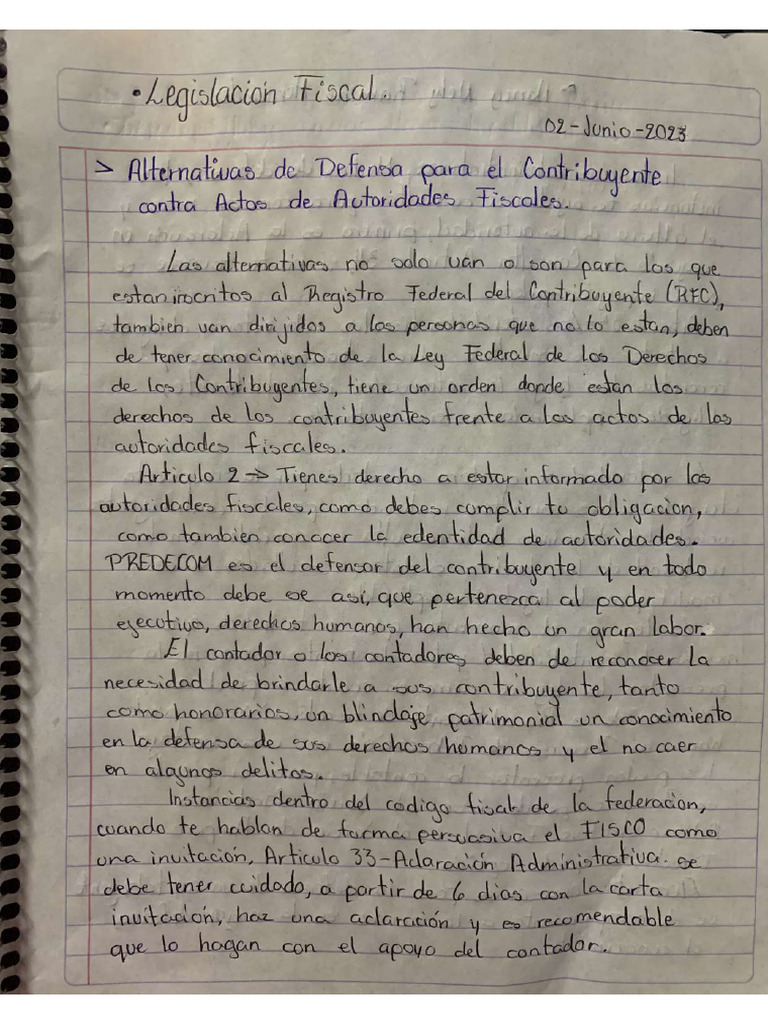 • Legislacion Fiscal.
02-Junio-2023
> Alternativas de Defensa para el Contribuyente
contra Actos de Autoridades Fiscales.
Las alternativas no solo van o son para los que
estan inscritos al Registro Federal del Contribuyente (RFC),
tambien van dirijidos a las personas que no lo estan, deben
de tener conocimiento de la Ley Federal de los Derechos
de los Contribuyentes, tiene un orden donde estan los
derechos de los contribuyentes frente a los actos de las
autoridades fiscales.
Articulo 2 → Tienes derecho a estar informado por las
autoridades fiscales, como debes cumplir tu obligacion,
como tambien conocer la edentidad de autoridades.
PREDECOM es el defensor del contribuyente y en todo
momento debe se asi, que pertenezca al poder
ejecutivo, derechos humanos, han hecho un gran labor.
El contador o los contadores deben de reconocer la
necesidad de brindarle a sus contribuyente, tanto
como honorarios, un blindaje patrimonial un conocimiento
en la defensa de sus derechos humanos y el no caer
en algunos delitos.
Instancias dentro del codigo fiscal de la federacion,
cuando te hablan de forma persuasiva el FISCO como
una invitación, Articulo 33-Aclaración Administrativa. se
debe tener cuidado, a partir de 6 dias con la carta
invitación, haz una aclaración y es recomendable
que lo hagan con el apoyo del contador.